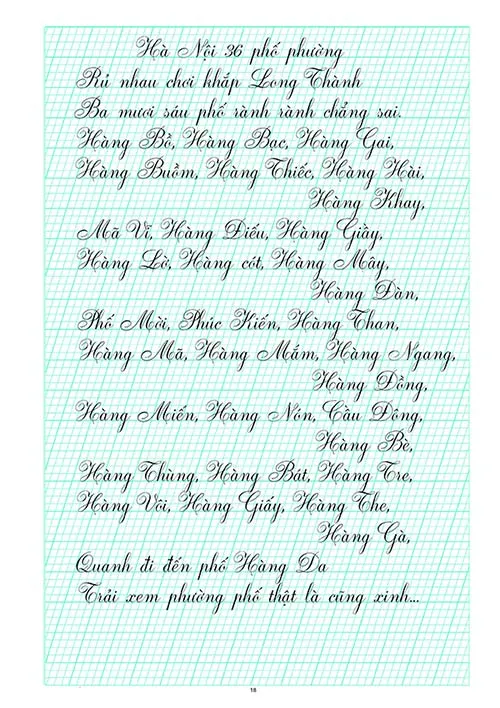 Hà Nội 36 phố phường
Rủ nhau chơi khắp Long Thành
Ba mươi sáu phố rành rành chẳng sai.
Hàng Bồ, Hàng Bạc, Hàng Gai,
Hàng Buồm, Hàng Thiếc, Hàng Hài,
Hàng Khay,
Mã Vĩ, Hàng Điếu, Hàng Giầy,
Hàng Lờ, Hàng cót, Hàng Mây,
Hàng Đàn,
Phố Mới, Phúc Kiến, Hàng Than,
Hàng Mã, Hàng Mắm, Hàng Ngang,
Hàng Đồng,
Hàng Miến, Hàng Nón, Cầu Đông,
Hàng Bè,
Hàng Thùng, Hàng Bát, Hàng Tre,
Hàng Vôi, Hàng Giấy, Hàng The,
Hàng Gà,
Quanh đi đến phố Hàng Da
Trải xem phường phố thật là cũng xinh...
18